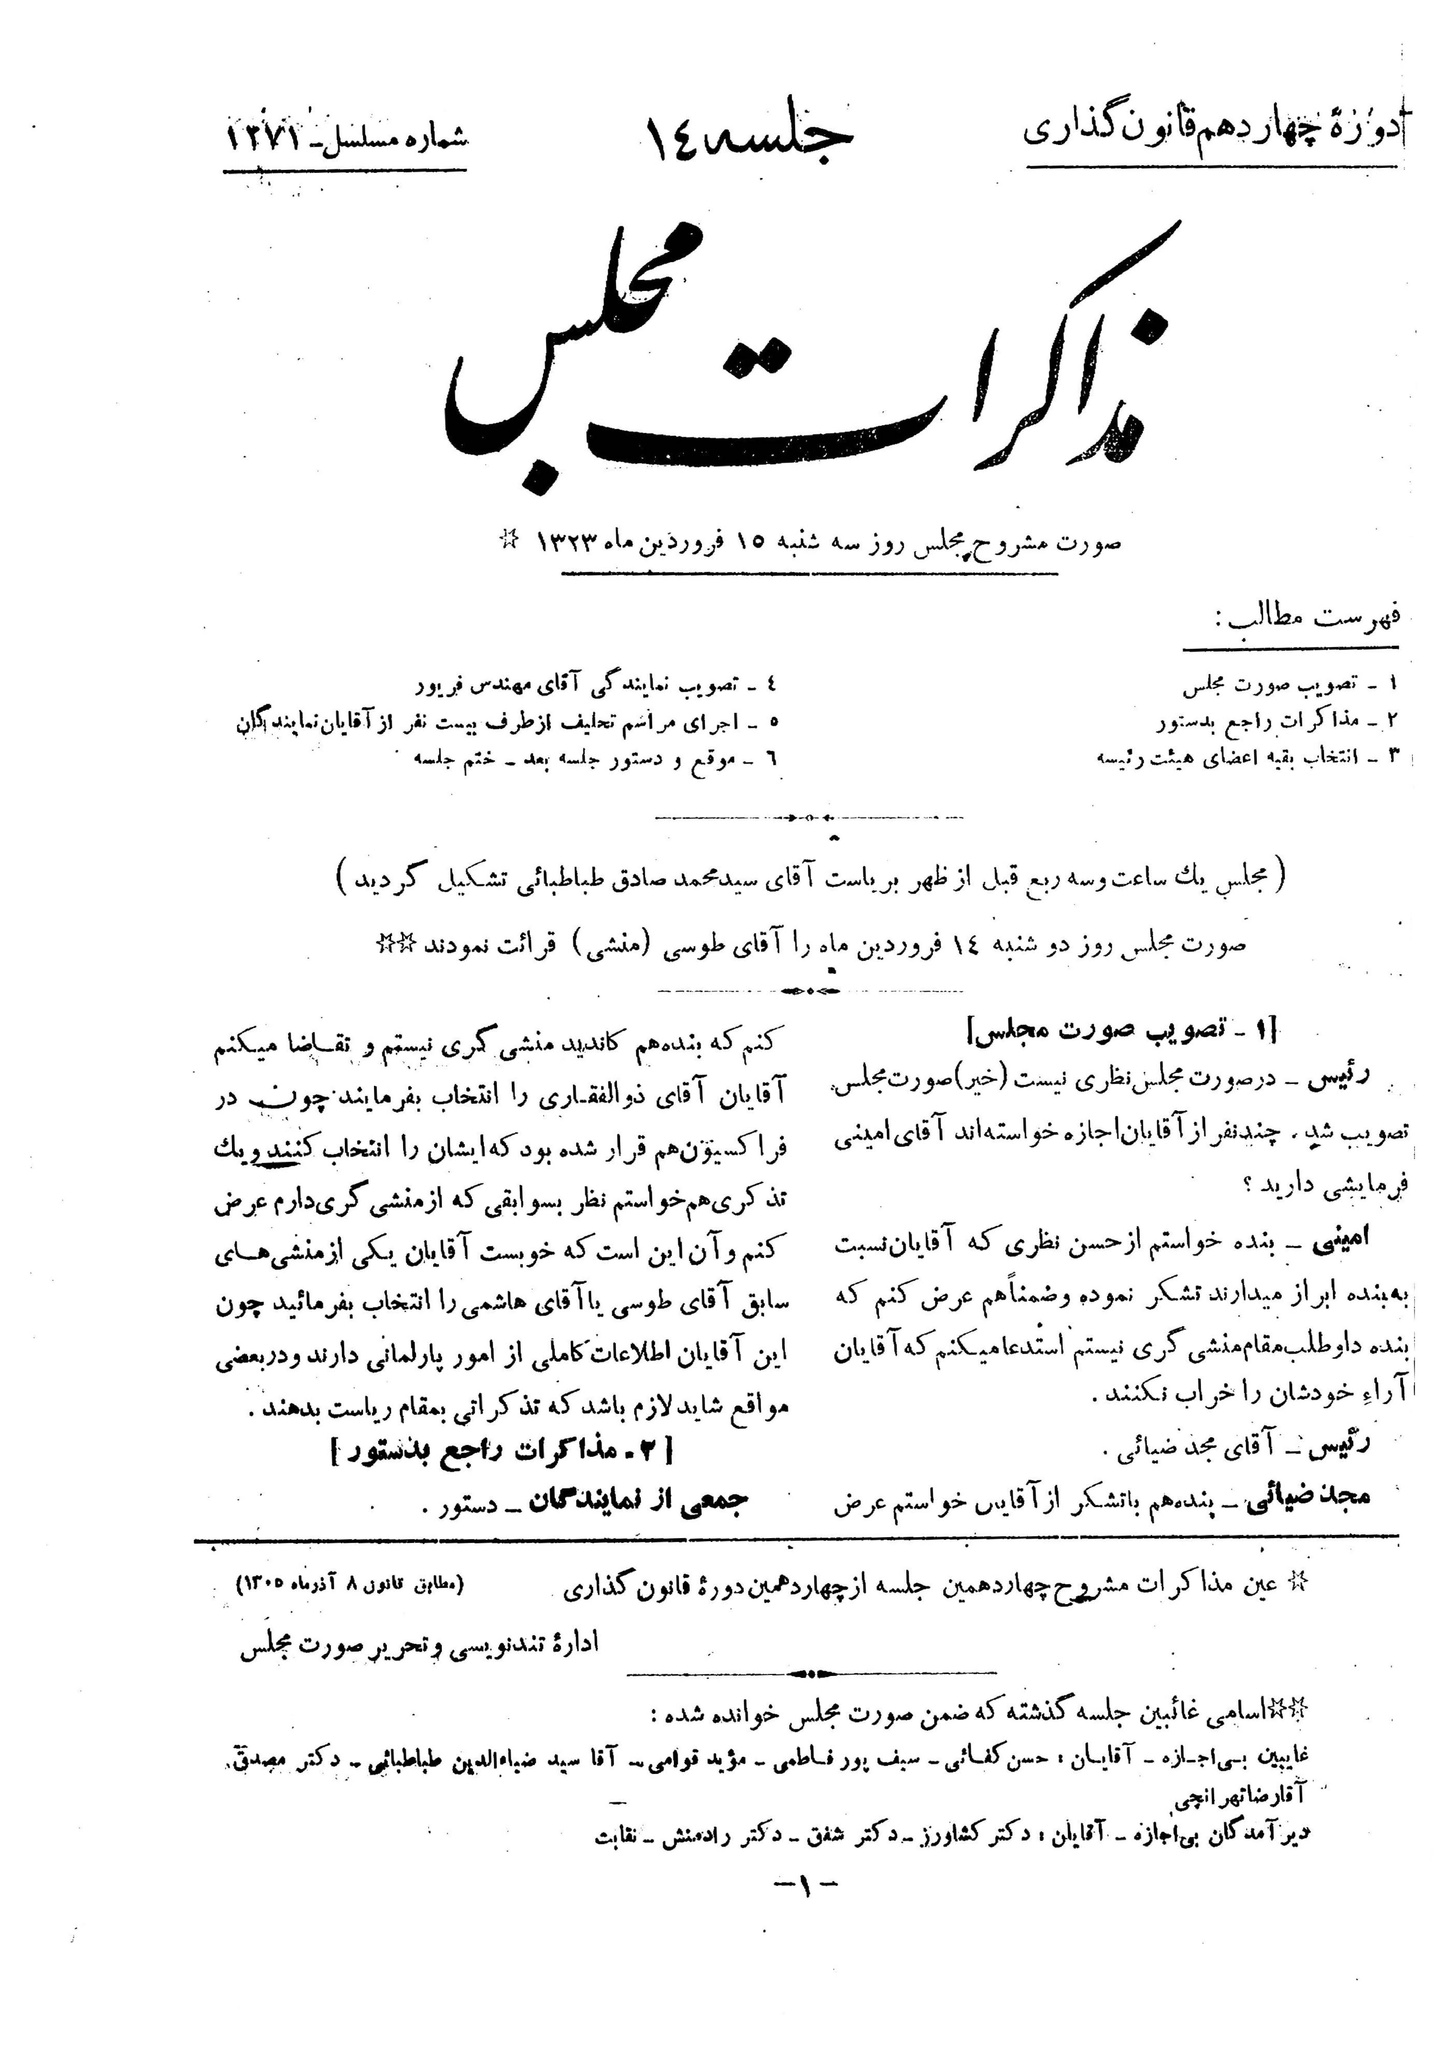 دورهٔ چهاردهم قانون گذاری
جلسه ۱۴
شماره مسلسل ـ ۱۲۷۱
مذاکرات مجلس
صورت مشروح مجلس روز سه شنبه ۱۵ فروردین ماه ۱۳۲۳ ☆
فهرست مطالب :
۱ ـ تصویب صورت مجلس
۲ ـ مذاکرات راجع بدستور
۳ ـ انتخاب بقیه اعضای هیئت رئیسه
۴ ـ تصویب نمایندگی آقای مهندس فریور
۵ ـ اجرای مراسم تحلیف از طرف بیست نفر از آقایان نمایندگان
۶ ـ موقع و دستور جلسه بعد ـ ختم جلسه
( مجلس یك ساعت و سه ربع قبل از ظهر بریاست آقای سید محمد صادق طباطبائی تشکیل گردید )
صورت مجلس روز دو شنبه ۱۴ فروردین ماه را آقای طوسی (منشی) قرائت نمودند ☆☆
[۱ ـ تصویب صورت مجلس]
رئیس ـ در صورت مجلس نظری نیست (خیر) صورت مجلس
تصویب شد . چند نفر از آقایان اجازه خواسته‌اند آقای امینی
فرمایشی دارید ؟
امینی ـ بنده خواستم از حسن نظری که آقایان نسبت
به بنده ابراز میدارند تشکر نموده و ضمناً هم عرض کنم که
بنده داوطلب مقام منشی گری نیستم استدعا میکنم که آقایان
آراء خودشان را خراب نکنند .
رئیس ـ آقای مجد ضیائی .
مجد ضیائی ـ بنده هم با تشکر از آقایان خواستم عرض
کنم که بنده هم کاندید منشی گری نیستم و تقاضا میکنم
آقایان آقای ذوالفقاری را انتخاب بفرمایند چون در
فراکسیون هم قرار شده بود که ایشان را انتخاب کنند و یك
تذکری هم خواستم نظر بسوابقی که از منشی گری دارم عرض
کنم و آن این است که خوبست آقایان یکی از منشی های
سابق آقای طوسی یا آقای هاشمی را انتخاب بفرمائید چون
این آقایان اطلاعات کاملی از امور پارلمانی دارند و در بعضی
مواقع شاید لازم باشد که تذکراتی بمقام ریاست بدهند .
[ ۲ ـ مذاکرات راجع بدستور ]
جمعی از نمایندگان ـ دستور .
☆ عین مذاکرات مشروح چهاردهمین جلسه از چهاردهمین دورهٔ قانون گذاری
(مطابق قانون ۸ آذر ماه ۱۳۰۵)
ادارهٔ تندنویسی و تحریر صورت مجلس
☆☆ اسامی غائبین جلسه گذشته که ضمن صورت مجلس خوانده شده :
غایبین بی اجازه ـ آقایان : حسن کفائی ـ سیف پور فاطمی ـ مؤید قوامی ـ آقا سید ضیاءالدین طباطبائی ـ دکتر مصدق
آقا رضا تهرانچی
دیر آمدگان بی اجازه ـ آقایان : دکتر کشاورز ـ دکتر شفق ـ دکتر رادمنش ـ نقابت
ـ ۱ ـ